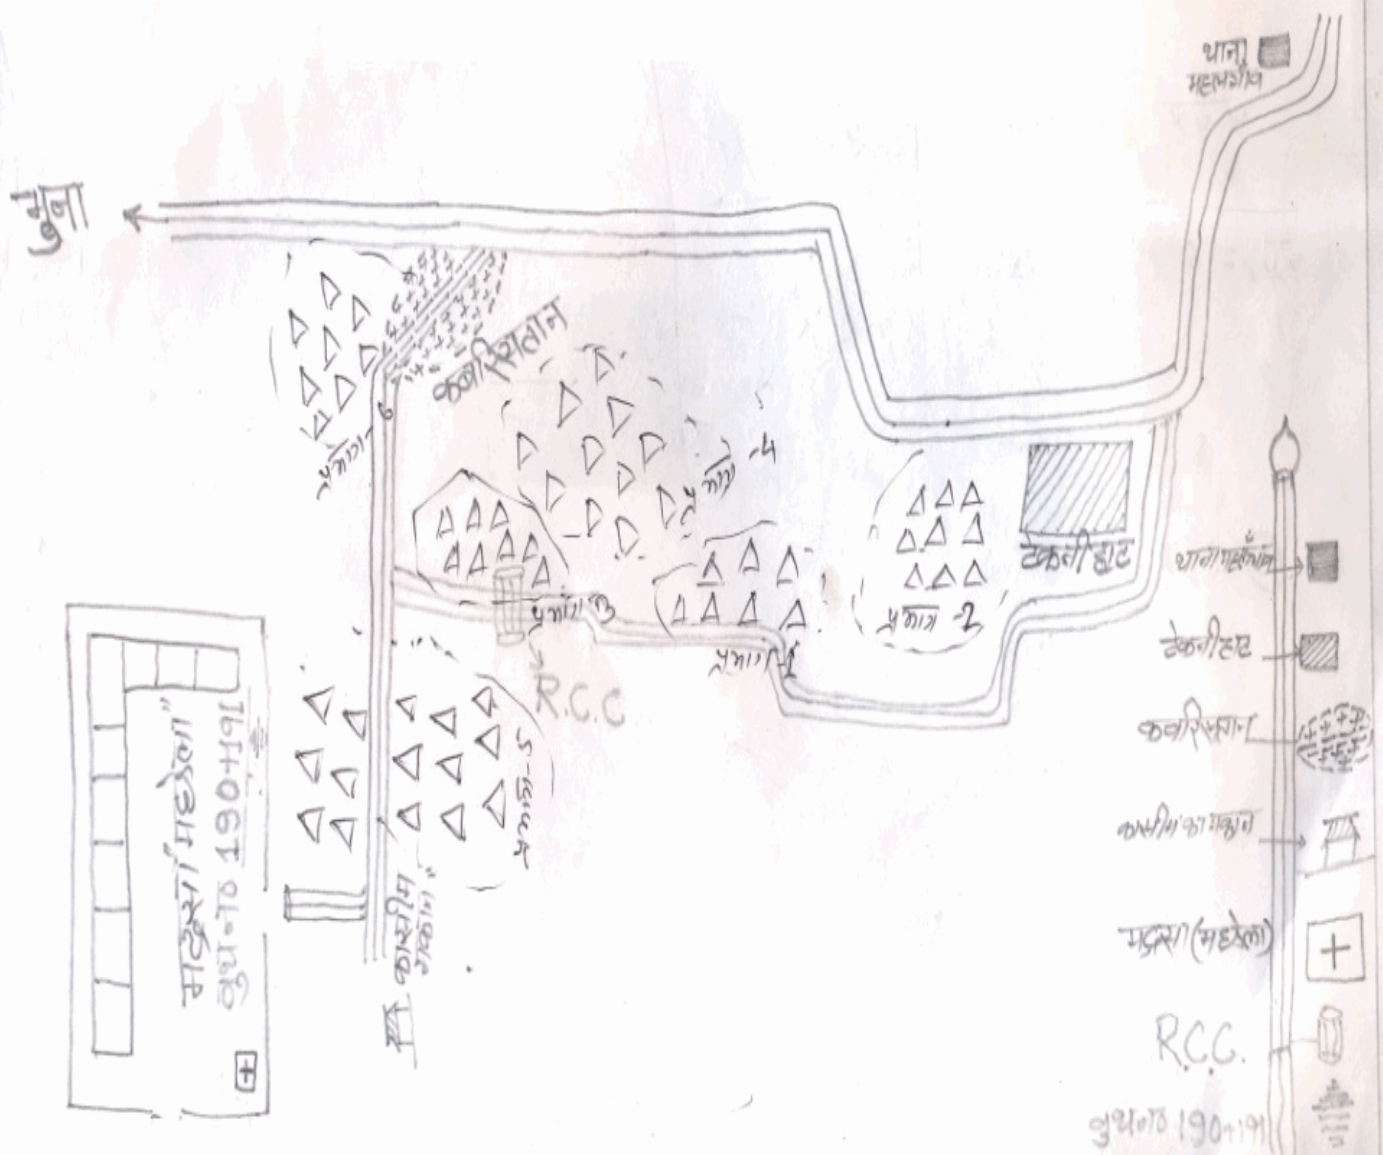 थाना
महलगाँव
भुना
कबरिस्तान
प्रभाग-6
प्रभाग-4
प्रभाग-3
R.C.C
प्रभाग-1
प्रभाग-2
टेकनी हाट
प्रभाग-5
कासीम
मकान"
मदरसा "महेला"
बुथ न० 190+191
थाना महलगाँव
टेकनी हाट
कबरिस्तान
कासीम का मकान
मदरसा (महेला)
R.C.C.
बुथ न० 190+191